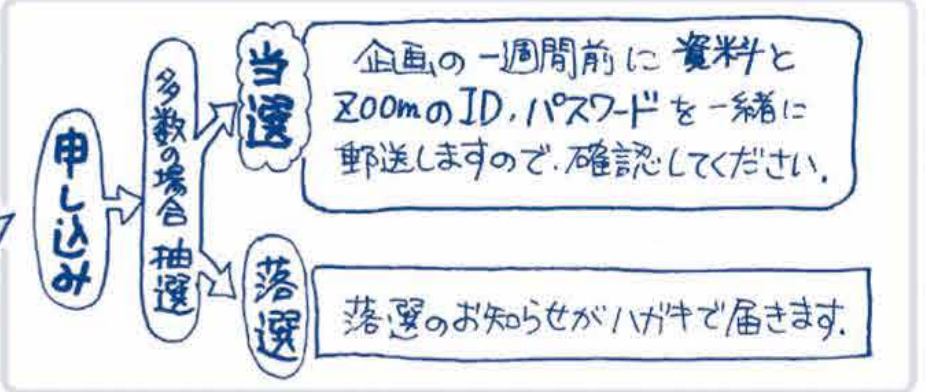 申し込み
多数の場合 抽選
当選
企画の一週間前に 資料と
ZoomのID、パスワードを一緒に
郵送しますので、確認してください。
落選
落選のお知らせがハガキで届きます。